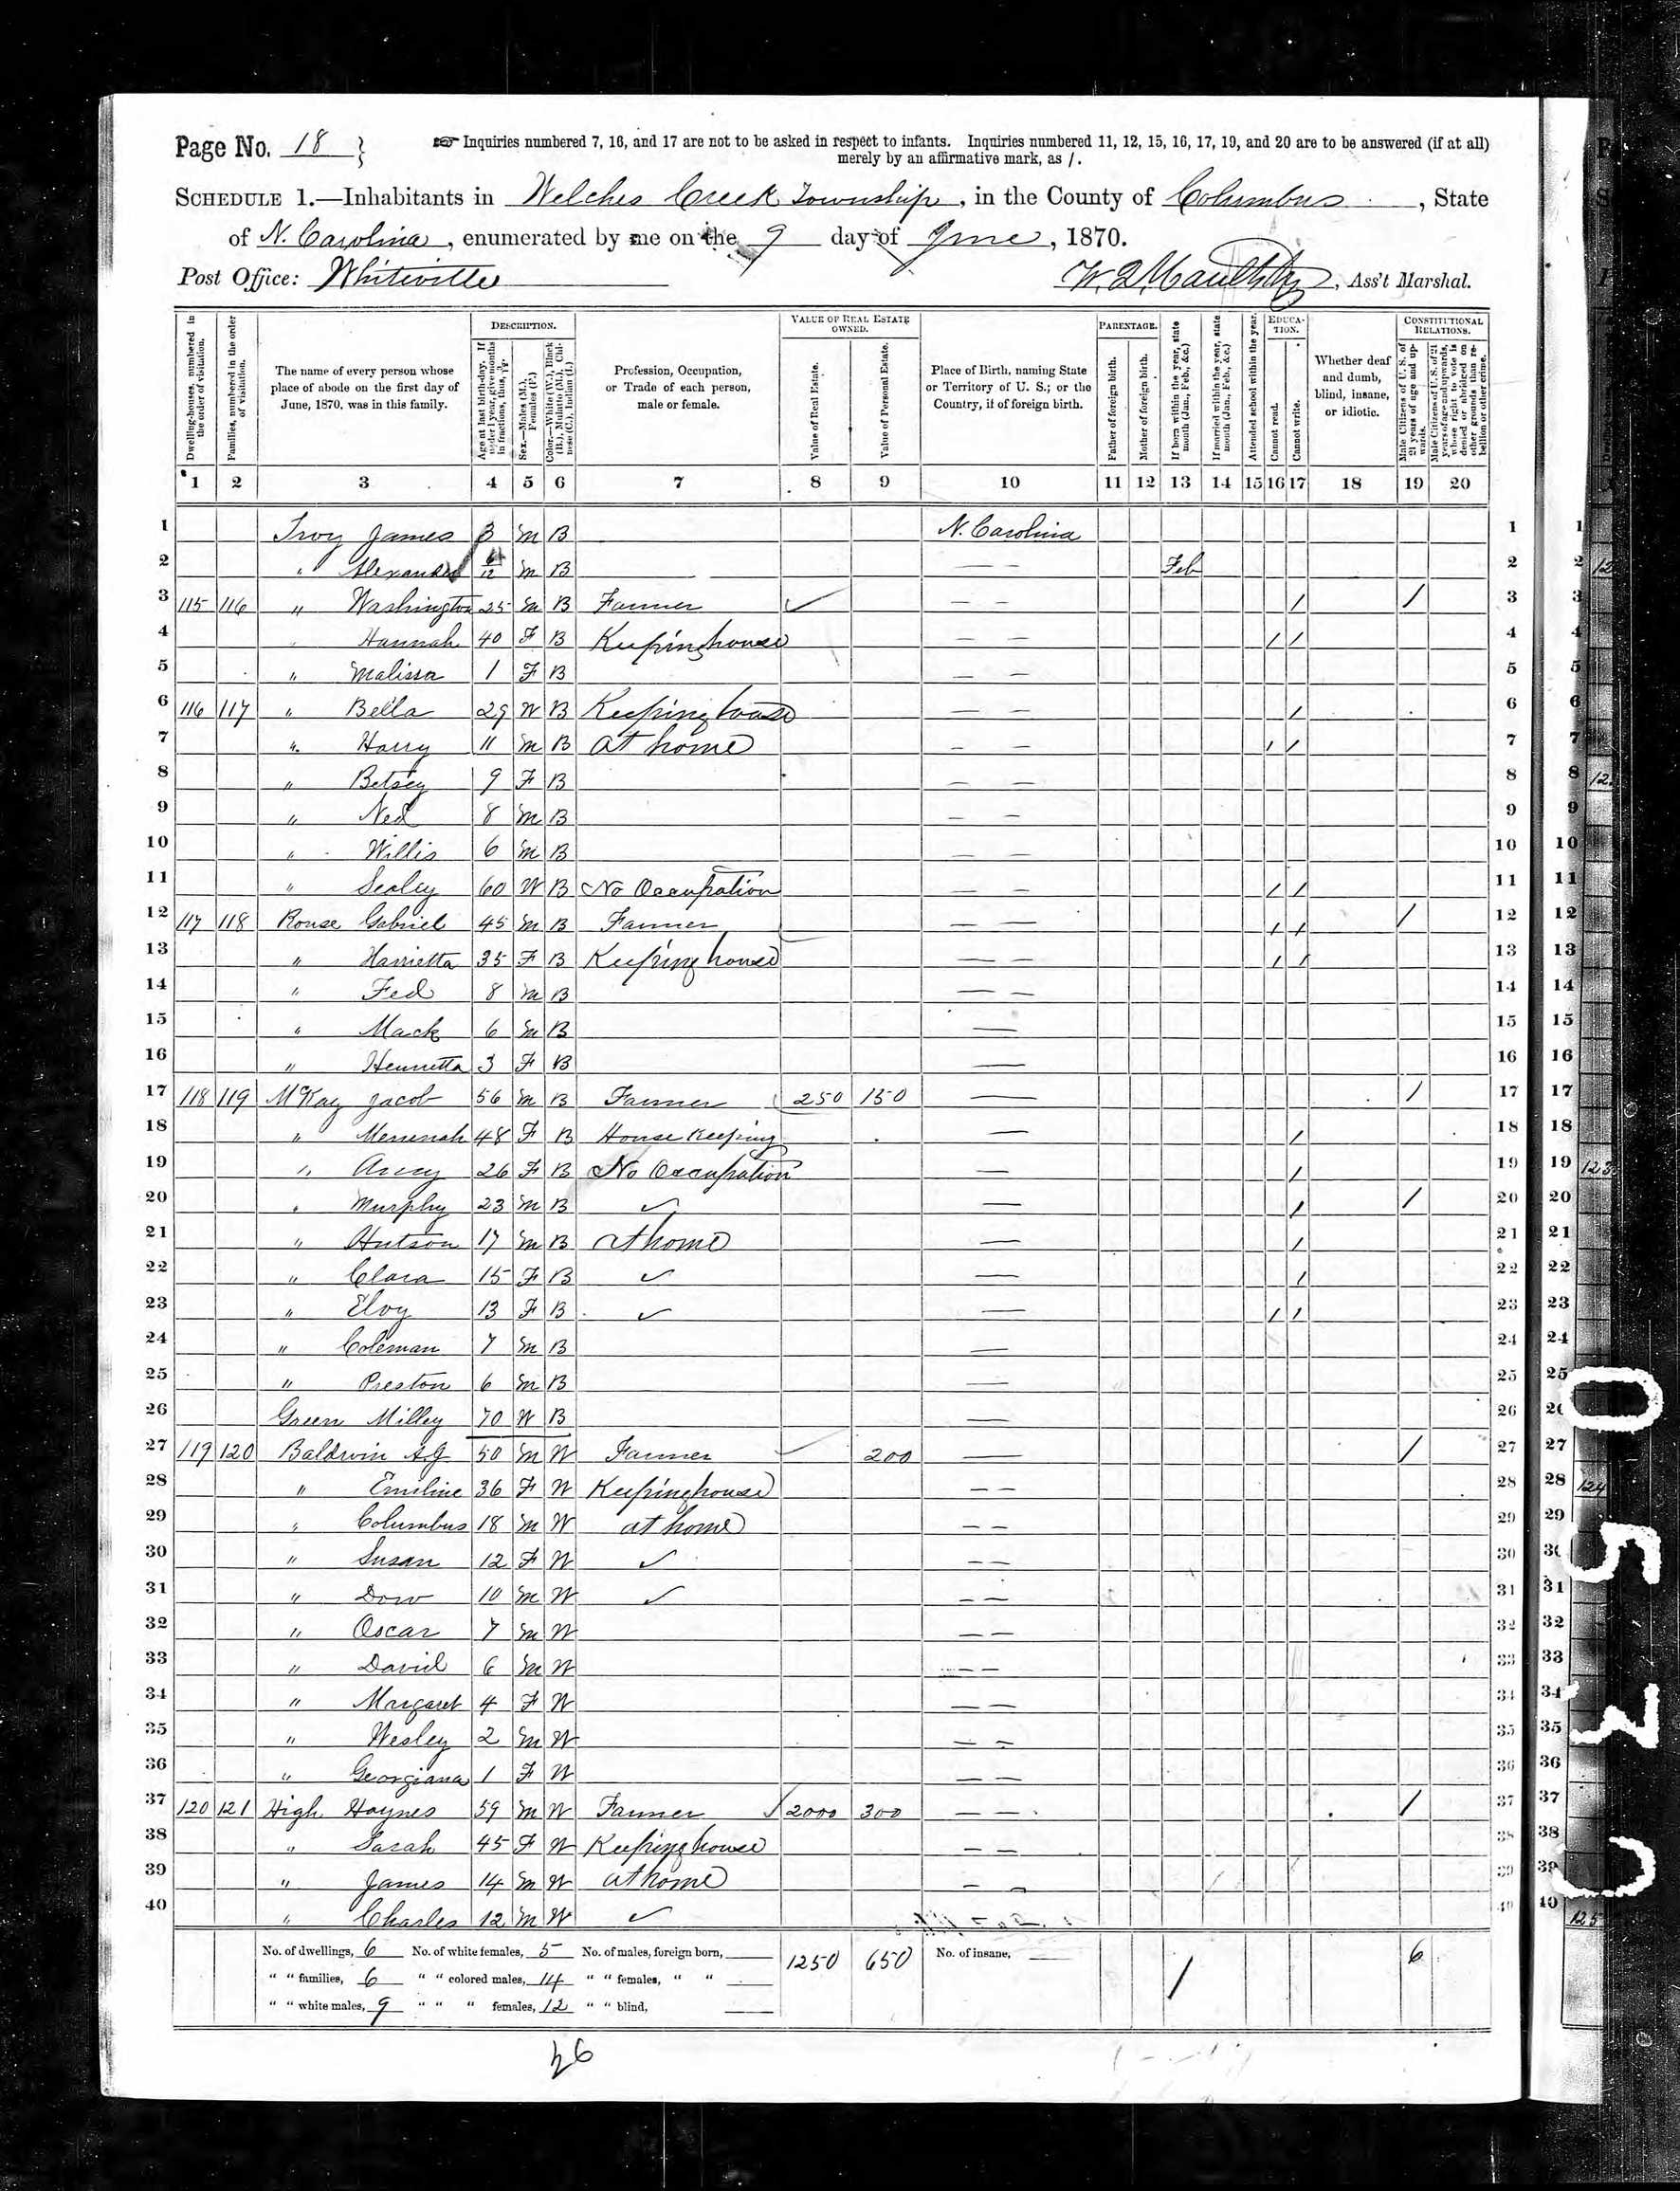 Page No. 18
Inquiries numbered 7, 16, and 17 are not to be asked in respect to infants. Inquiries numbered 11, 12, 15, 16, 17, 19, and 20 are to be answered (if at all)
merely by an affirmative mark, as /.
SCHEDULE 1.—Inhabitants in Welches Creek Township, in the County of Columbus, State
of N. Carolina, enumerated by me on the 9 day of June, 1870.
Post Office: Whiteville
Ass't Marshal.
Dwelling-houses, numbered in the order of visitation.
Families, numbered in the order of visitation.
The name of every person whose place of abode on the first day of June, 1870, was in this family.
DESCRIPTION.
Age at last birth-day. If under 1 year, give months in fractions, thus, 3/12.
Sex.—Males (M.), Females (F.)
Color.—White (W.), Black (B.), Mulatto (M.), Chinese (C.), Indian (I.)
Profession, Occupation, or Trade of each person, male or female.
VALUE OF REAL ESTATE OWNED.
Value of Real Estate.
Value of Personal Estate.
Place of Birth, naming State or Territory of U. S.; or the Country, if of foreign birth.
PARENTAGE.
Father of foreign birth.
Mother of foreign birth.
If born within the year, state month (Jan., Feb., &c.)
If married within the year, state month (Jan., Feb., &c.)
Attended school within the year.
EDUCATION.
Cannot read.
Cannot write.
Whether deaf and dumb, blind, insane, or idiotic.
CONSTITUTIONAL RELATIONS.
Male Citizens of U. S. of 21 years of age and upwards.
Male Citizens of U. S. of 21 years of age and upwards, whose right to vote is denied or abridged on other grounds than rebellion or other crime.
1 2 3 4 5 6 7 8 9 10 11 12 13 14 15 16 17 18 19 20
1 Troy James 3 M B N. Carolina 1
2 " Alexander /12 M B — — Feb 2
3 115 116 " Washington 25 M B Farmer — — / / 3
4 " Hannah 40 F B Keeping house — — / / 4
5 " Malissa 1 F B — — 5
6 116 117 " Bella 29 W B Keeping house — — / 6
7 " Harry 11 M B at home — — / / 7
8 " Betsey 9 F B — — 8
9 " Ned 8 M B — — 9
10 " Willis 6 M B — — 10
11 " Sealey 60 W B No Occupation — — / / 11
12 117 118 Rouse Gabriel 45 M B Farmer — — / / / 12
13 " Harrietta 35 F B Keeping house — — / / 13
14 " Fed 8 M B — — 14
15 " Mack 6 M B — 15
16 " Henretta 3 F B — 16
17 118 119 McKay Jacob 56 M B Farmer 250 150 — / 17
18 " 48 F B House Keeping — / 18
19 " 26 F B No Occupation — / 19
20 " Murphy 23 M B ✓ — / / 20
21 " Hutson 17 M B at home — / 21
22 " Clara 15 F B ✓ — / 22
23 " Elvy 13 F B ✓ — / / 23
24 " Coleman 7 M B — 24
25 " Preston 6 M B — 25
26 Green Milley 70 W B — 26
27 119 120 Baldwin A J 50 M W Farmer 200 — / 27
28 " Emiline 36 F W Keeping house — — 28
29 " Columbus 18 M W at home — — 29
30 " Susan 12 F W ✓ — — 30
31 " Dow 10 M W ✓ — — 31
32 " Oscar 7 M W — — 32
33 " David 6 M W — — 33
34 " Margaret 4 F W — — 34
35 " Wesley 2 M W — — 35
36 " Georgiana 1 F W — — 36
37 120 121 High Haynes 59 M W Farmer ✓ 2000 300 — — / 37
38 " Sarah 45 F W Keeping house — — 38
39 " James 14 M W at home — — 39
40 " Charles 12 M W ✓ 40
No. of dwellings, 6 No. of white females, 5 No. of males, foreign born, 1250 650 No. of insane, / 6
" " families, 6 " " colored males, 14 " " females, " "
" " white males, 9 " " " females, 12 " " blind,